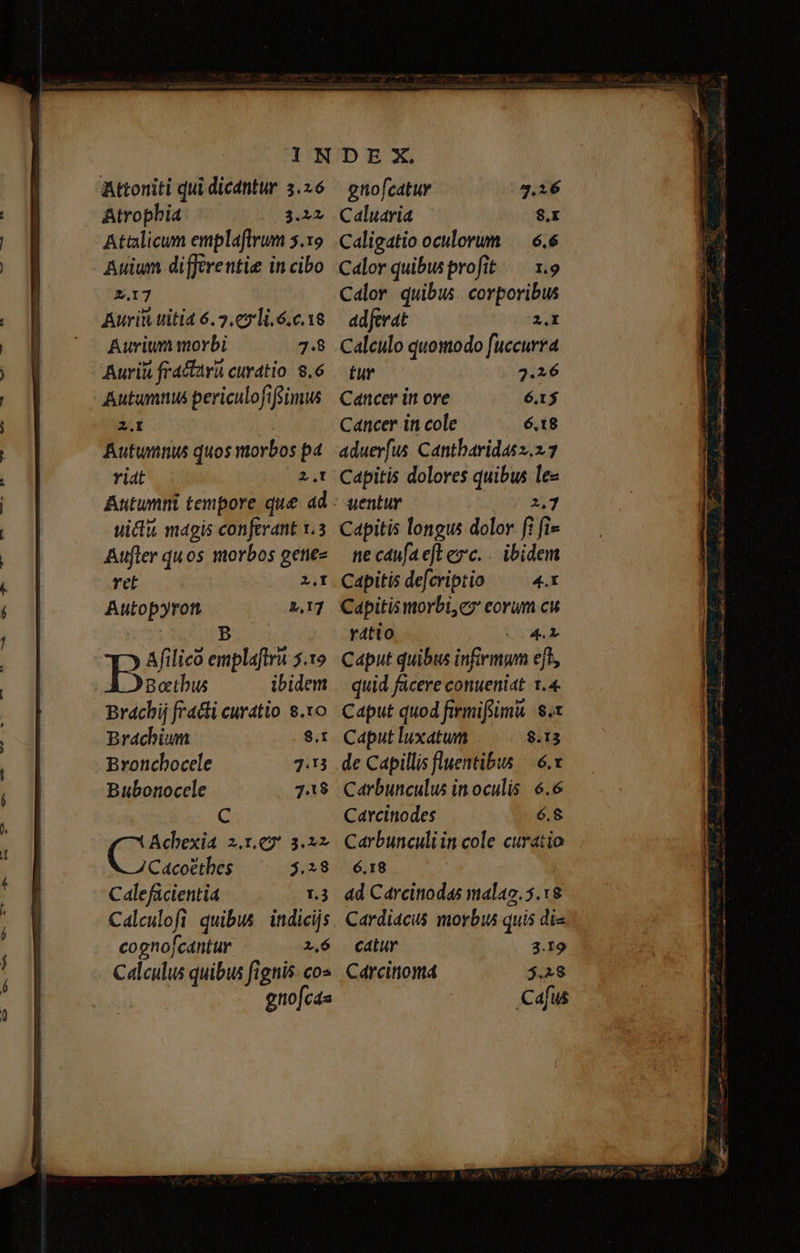 INDEX.
Attoniti qui dicantur 3.26
Atrophia 3.22
Attalicum emplaſtrum 5.19
Auium differentiæ in cibo
2.17
Auriū uitia 6.7.&li.6.c.18
Aurium morbi 7.8
Auriū fractarū curatio 8.6
Autumnus periculoſiſsimus
2.1
Autumnus quos morbos pa
riat 2.1
Autumni tempore quæ ad
uictū magis conferant 1.3
Auſter quos morbos gene=
ret 2.1
Autopyron 2.17
B
BAſilicō emplaſtrū 5.19
Bœthus ibidem
Brachij fracti curatio 8.10
Brachium 8.1
Bronchocele 7.13
Bubonocele 7.18
C
CAchexia 2.1.& 3.22
Cacoëthes 5.28
Calefacientia 1.3
Calculoſi quibus indicijs
cognoſcantur 2.6
Calculus quibus ſignis co=
gnoſca=
gnoſcatur 7.26
Caluaria 8.1
Caligatio oculorum 6.6
Calor quibus profit 1.9
Calor quibus corporibus
adferat 2.1
Calculo quomodo ſuccurra
tur 7.26
Cancer in ore 6.15
Cancer in cole 6.18
aduerſus Cantharidas 2.27
Capitis dolores quibus le=
uentur 2.7
Capitis longus dolor ſi ſi=
ne cauſa eſt &c. ibidem
Capitis deſcriptio 4.1
Capitis morbi, & eorum cu
ratio 4.2
Caput quibus infirmum eſt,
quid facere conueniat 1.4
Caput quod firmiſsimū 8.1
Caput luxatum 8.13
de Capillis fluentibus 6.1
Carbunculus in oculis 6.6
Carcinodes 6.8
Carbunculi in cole curatio
6.18
ad Carcinodas malag. 5.18
Cardiacus morbus quis di=
catur 3.19
Carcinoma 5.28
Caſus